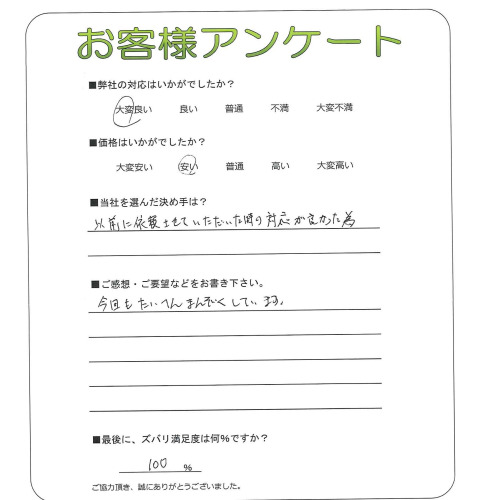 お客様アンケート
■弊社の対応はいかがでしたか？
大変良い 良い 普通 不満 大変不満
■価格はいかがでしたか？
大変安い 安い 普通 高い 大変高い
■当社を選んだ決め手は？
以前に依頼させていただいた時の対応が良かった為
■ご感想・ご要望などをお書き下さい。
今回もたいへんまんぞくしています。
■最後に、ズバリ満足度は何％ですか？
100 ％
ご協力頂き、誠にありがとうございました。